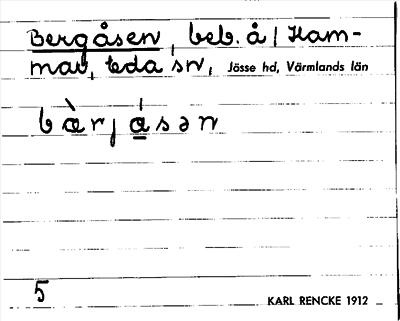 Bergåsen, beb. å / Ham-
mar, Eda sn, Jösse hd, Värmlands län
bæ̀rjá̱sən
5
KARL RENCKE 1912